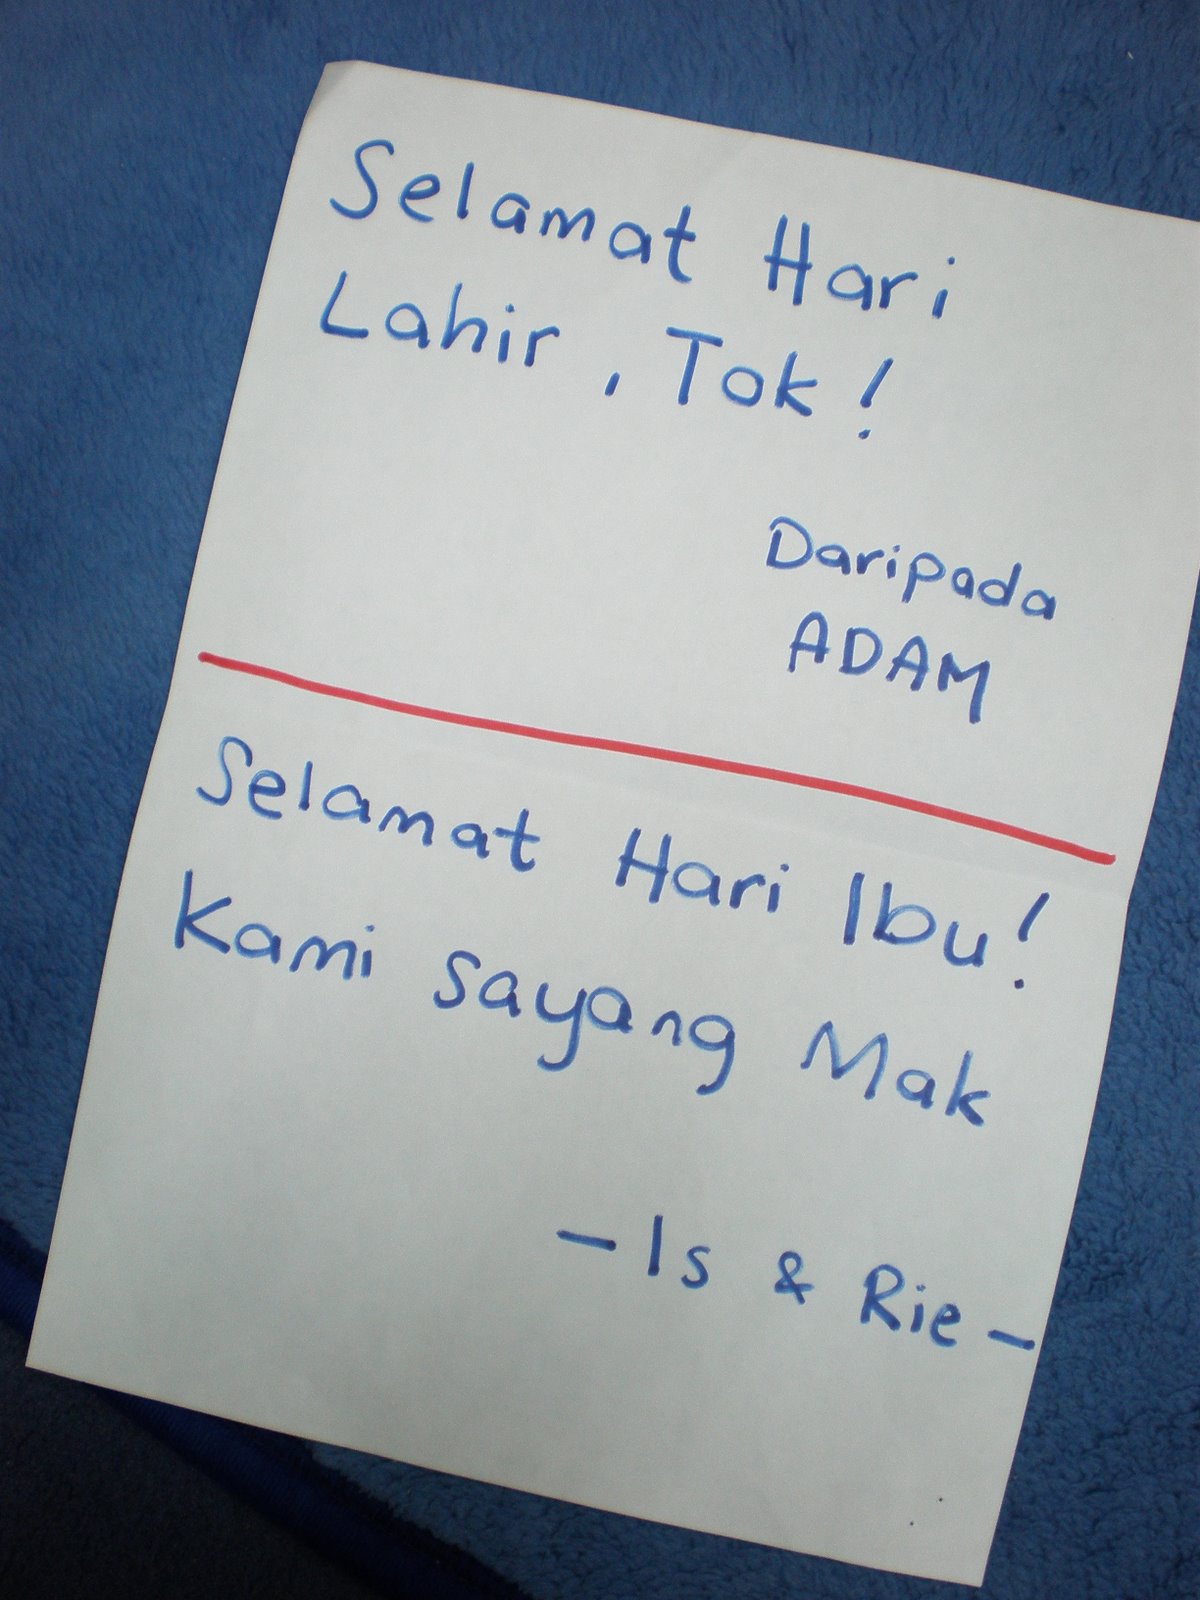 Selamat Hari
Lahir, Tok!
Daripada
ADAM
Selamat Hari Ibu!
Kami sayang Mak
- Is & Rie -